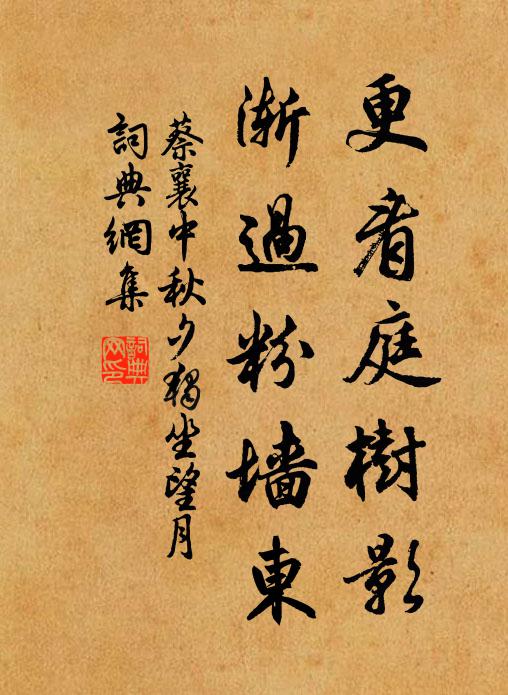 更看庭樹影
漸過粉墻東
蔡襄中秋夕獨坐望月
詞典網集
詞典網印